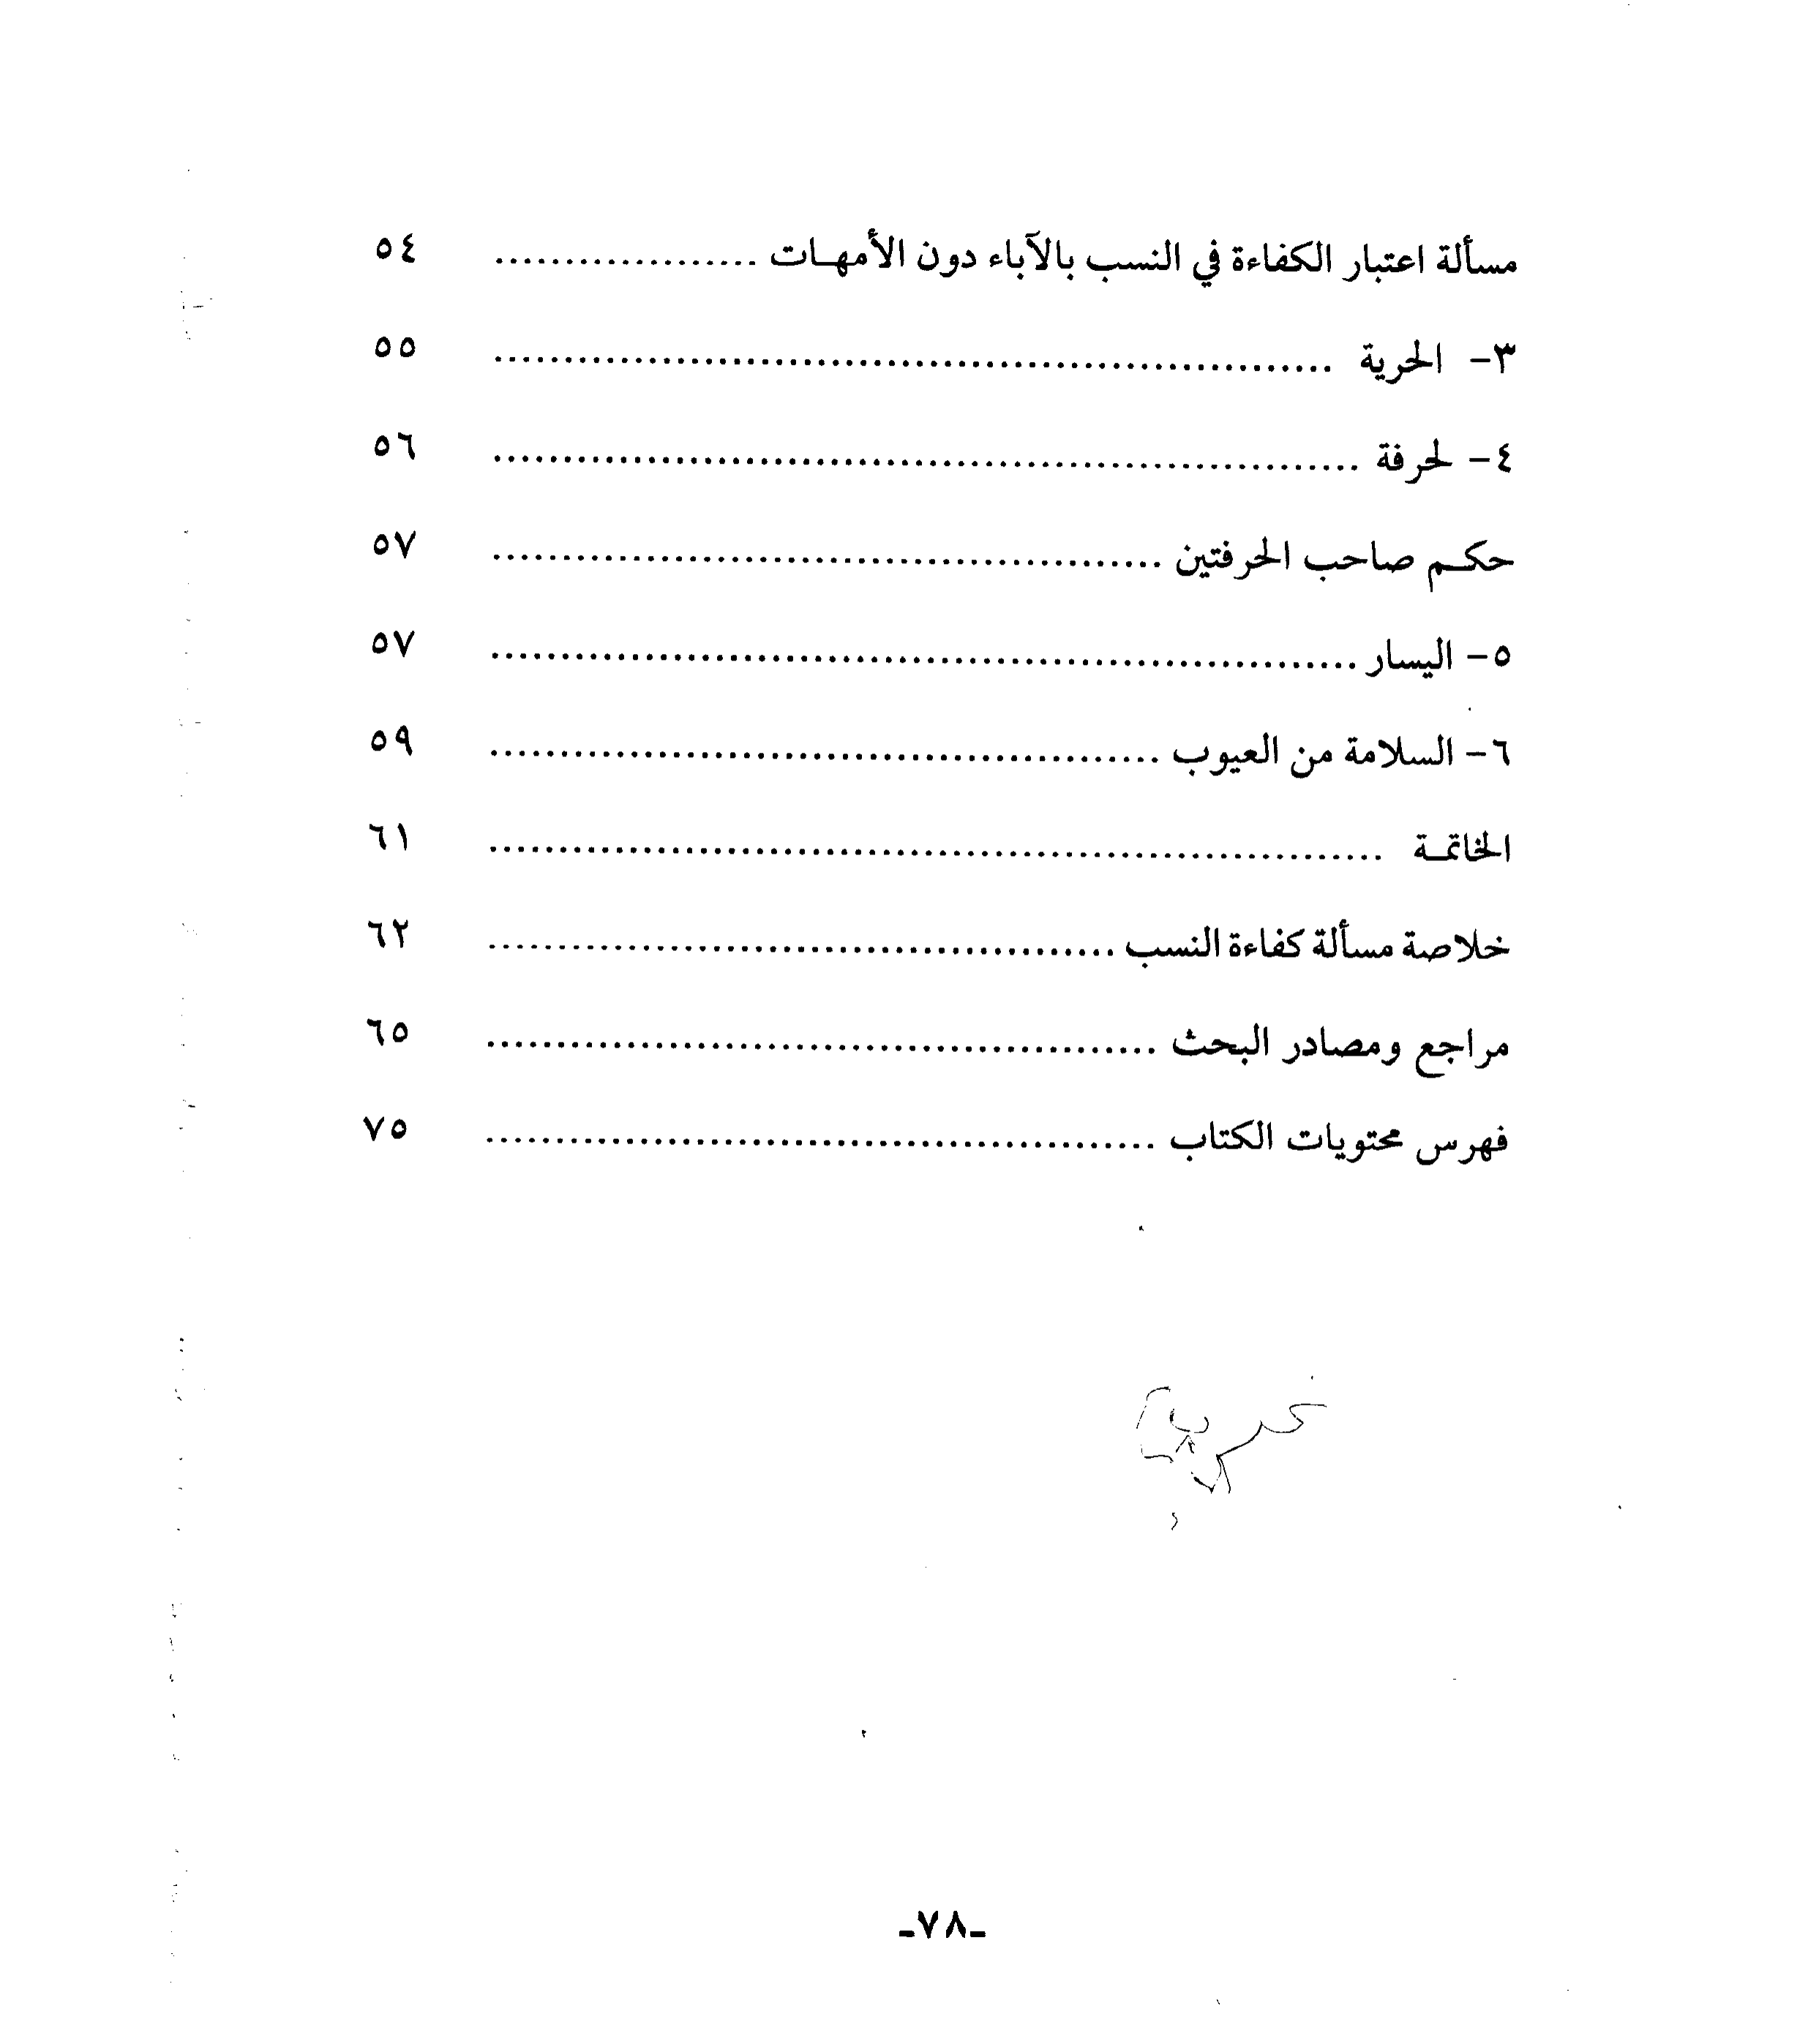 مسألة اعتبار الكفاءة في النسب بالآباء دون الأمهـات ................... ٥٤
٣- الحرية ............................................................ ٥٥
٤- لحرفة .............................................................. ٥٦
حكـم صاحب الحرفتين ................................................ ٥٧
٥- اليسار .............................................................. ٥٧
٦- السلامة من العيوب ................................................ ٥٩
الخاتمـة ................................................................ ٦١
خلاصة مسألة كفاءة النسب ............................................. ٦٢
مراجع ومصادر البحث ................................................ ٦٥
فهرس محتويات الكتاب ................................................ ٧٥
-٧٨-